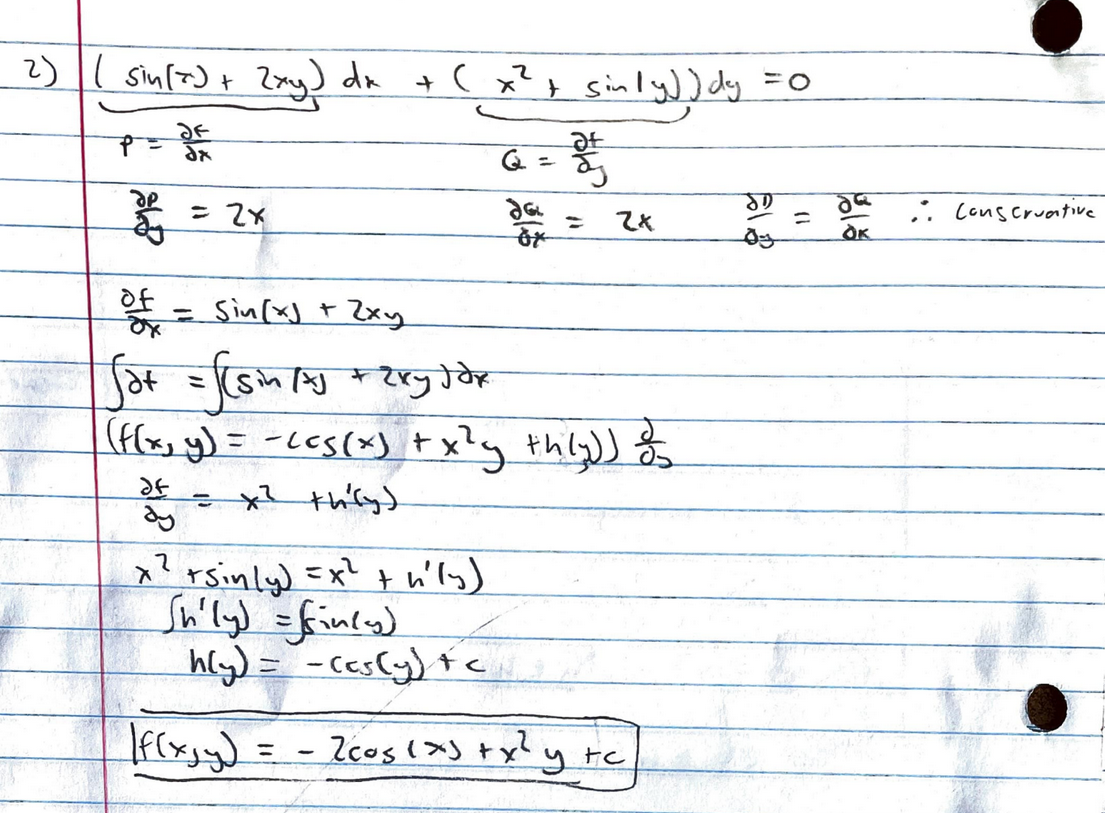 2) (sin(x) + 2xy) dx + (x² + sin(y)) dy = 0
P = ∂f/∂x Q = ∂f/∂y
∂P/∂y = 2x ∂Q/∂x = 2x ∂P/∂y = ∂Q/∂x ∴ conservative
∂f/∂x = sin(x) + 2xy
∫∂f = ∫(sin(x) + 2xy)∂x
(f(x,y) = -cos(x) + x²y + h(y)) ∂/∂y
∂f/∂y = x² + h'(y)
x² + sin(y) = x² + h'(y)
∫h'(y) = ∫sin(y)
h(y) = -cos(y) + c
f(x,y) = -2cos(x) + x²y + c